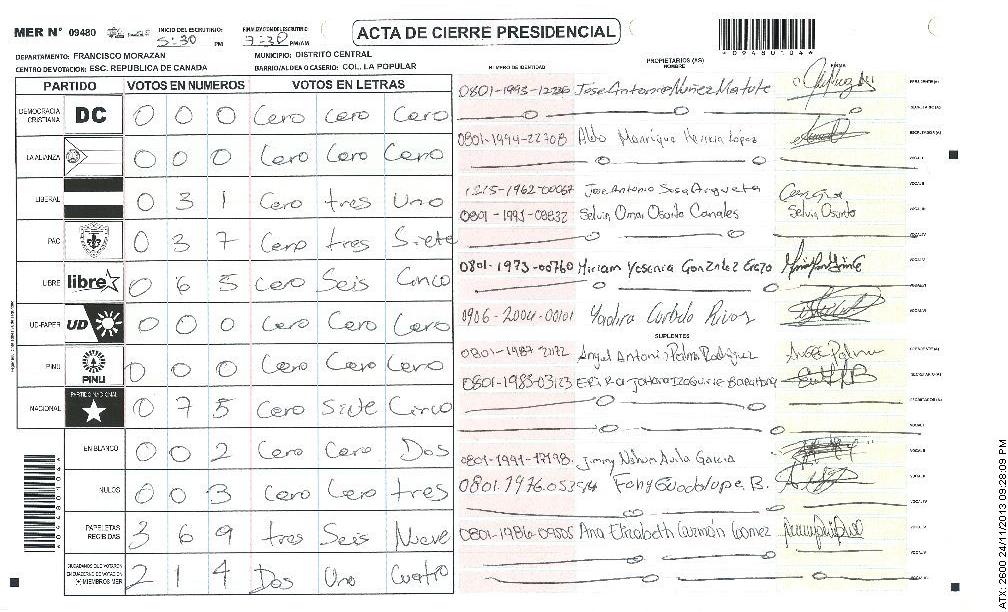 MER N° 09480 INICIO DEL ESCRUTINIO: 5:30 PM FINALIZACION DEL ESCRUTINIO: 7:30 PM/AM
ACTA DE CIERRE PRESIDENCIAL
DEPARTAMENTO: FRANCISCO MORAZAN MUNICIPIO: DISTRITO CENTRAL
CENTRO DE VOTACION: ESC. REPUBLICA DE CANADA BARRIO/ALDEA O CASERIO: COL. LA POPULAR
PARTIDO VOTOS EN NUMEROS VOTOS EN LETRAS
DEMOCRACIA CRISTIANA DC 0 0 0 Cero Cero Cero
LA ALIANZA 0 0 0 Cero Cero Cero
LIBERAL 0 3 1 Cero tres Uno
PAC 0 3 7 Cero tres Siete
LIBRE libre 0 6 5 Cero Seis Cinco
UD-FAPER UD 0 0 0 Cero Cero Cero
PINU PINU 0 0 0 Cero Cero Cero
NACIONAL PARTIDO NACIONAL 0 7 5 Cero Siete Cinco
EN BLANCO 0 0 2 Cero Cero Dos
NULOS 0 0 3 Cero Cero tres
PAPELETAS RECIBIDAS 3 6 9 tres Seis Nueve
CIUDADANOS QUE VOTARON EN CUADERNO DE VOTACION (+) MIEMBROS MER 2 1 4 Dos Uno Cuatro
NUMERO DE IDENTIDAD PROPIETARIOS (AS) NOMBRE FIRMA
Jose Antonio Nuñez Matute PRESIDENTE(A)
SECRETARIO(A)
0801-1994-22708 Aldo Manrique López ESCRUTADOR(A)
VOCAL I
1215-1962-00067 Jose Antonio Sosa Argueta VOCAL II
0801-1995-08832 Selvin Omar Osorto Canales Selvin Osorto VOCAL III
VOCAL IV
0801-1973-00760 Miriam Yesenia Gonzalez Erazo VOCAL V
VOCAL VI
0906-2004-00101 Yadira Rivas VOCAL VII
SUPLENTES
0801-1987- Angel Antonio Palma Rodriguez PRESIDENTE(A)
0801-1985-03123 Izaguirre Barahona SECRETARIO(A)
ESCRUTADOR(A)
VOCAL I
0801-1991-17198 Jimmy Nahun Avila Garcia VOCAL II
Fany Guadalupe B. VOCAL III
VOCAL IV
0801-1986-09505 Ana Elizabeth Guzmán Gomez VOCAL V
VOCAL VI
VOCAL VII
ATX: 2600 24/11/2013 09:28:09 PM